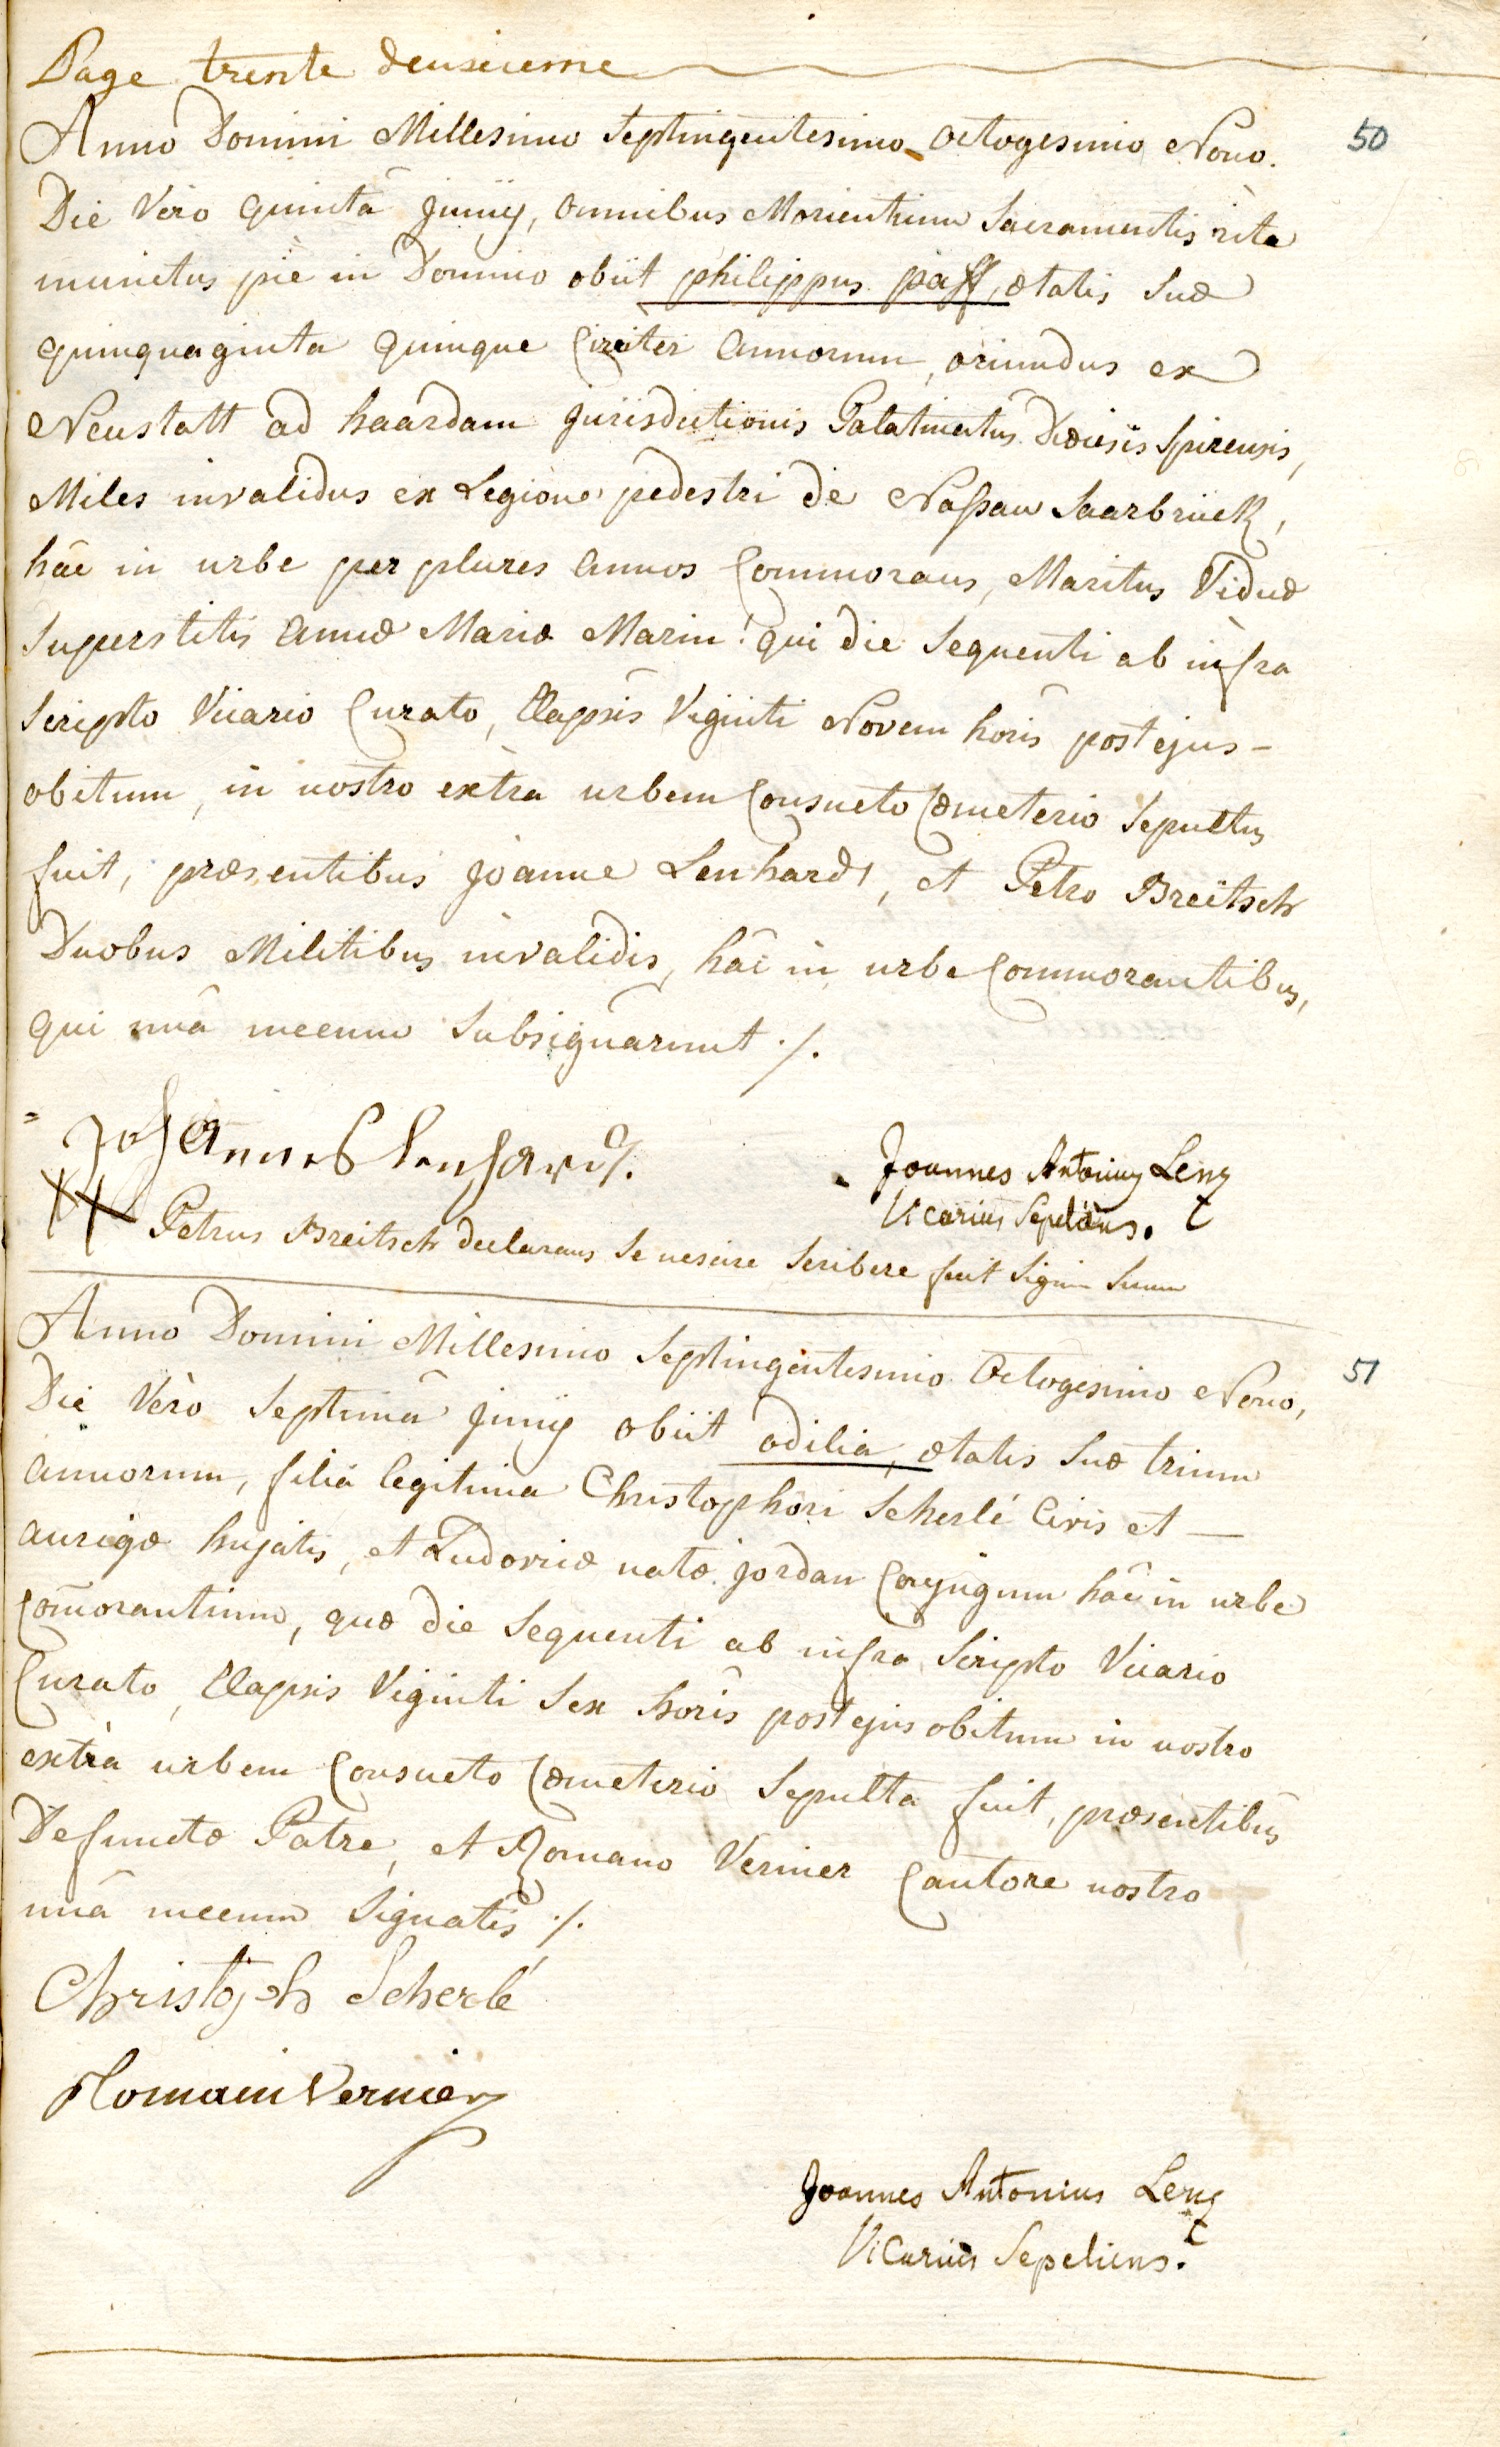 Page trente deuxieme
Anno Domini Millesimo Septingentesimo octogesimo Nono. 50
Die Vero quintâ Junij, omnibus Morientium Sacramentis rite
munitus piè in Domino obiit philippus paff, ætatis Suæ
quinquaginta quinque Circiter annorum, oriundus ex
Neustatt ad haardam Jurisdictionis Palatinatus Diœcesis Spirensis,
Miles invalidus ex Legione pedestri de Naßau Saarbrück,
hâc in urbe per plures annos Commorans, Maritus Viduæ
Superstitis annæ Mariæ Marin: qui die Sequenti ab infra
Scripto Vicario Curato, Elapsis Viginti Novem horis post ejus-
obitum, in nostro extra urbem Consueto Cœmeterio Sepultus
fuit, præsentibus Joanne Lenhardt, et Petro Breitsch
Duobus Militibus invalidis, hâc in urbe Commorantibus,
qui unâ mecum Subsignarunt ./.
= Johannes Lenhard
Joannes Antonius Lentz
Vicarius Sepeliens.
Petrus Breitsch declarans Se nescire Scribere fecit Signum Suum
Anno Domini Millesimo Septingentesimo Octogesimo Nono, 51
Die Vèro Septimâ Junij obiit odilia, ætatis Suæ trium
annorum, filia legitima Christophori Scherlé Civis et —
aurigæ hujatis, et Ludovicæ natæ jordan Conjugum hâc in urbe
Com̃orantium, quæ die Sequenti ab infra Scripto Vicario
Curato, Elapsis Viginti Sex horis post ejus obitum in nostro
extrà urbem Consueto Cœmeterio Sepulta fuit, præsentibus
Defunctæ Patre, et Romano Vernier Cantore nostro
unâ mecum Signatis ./.
Christoph Scherlé
Romain Vernier
Joannes Antonius Lentz
Vicarius Sepeliens.